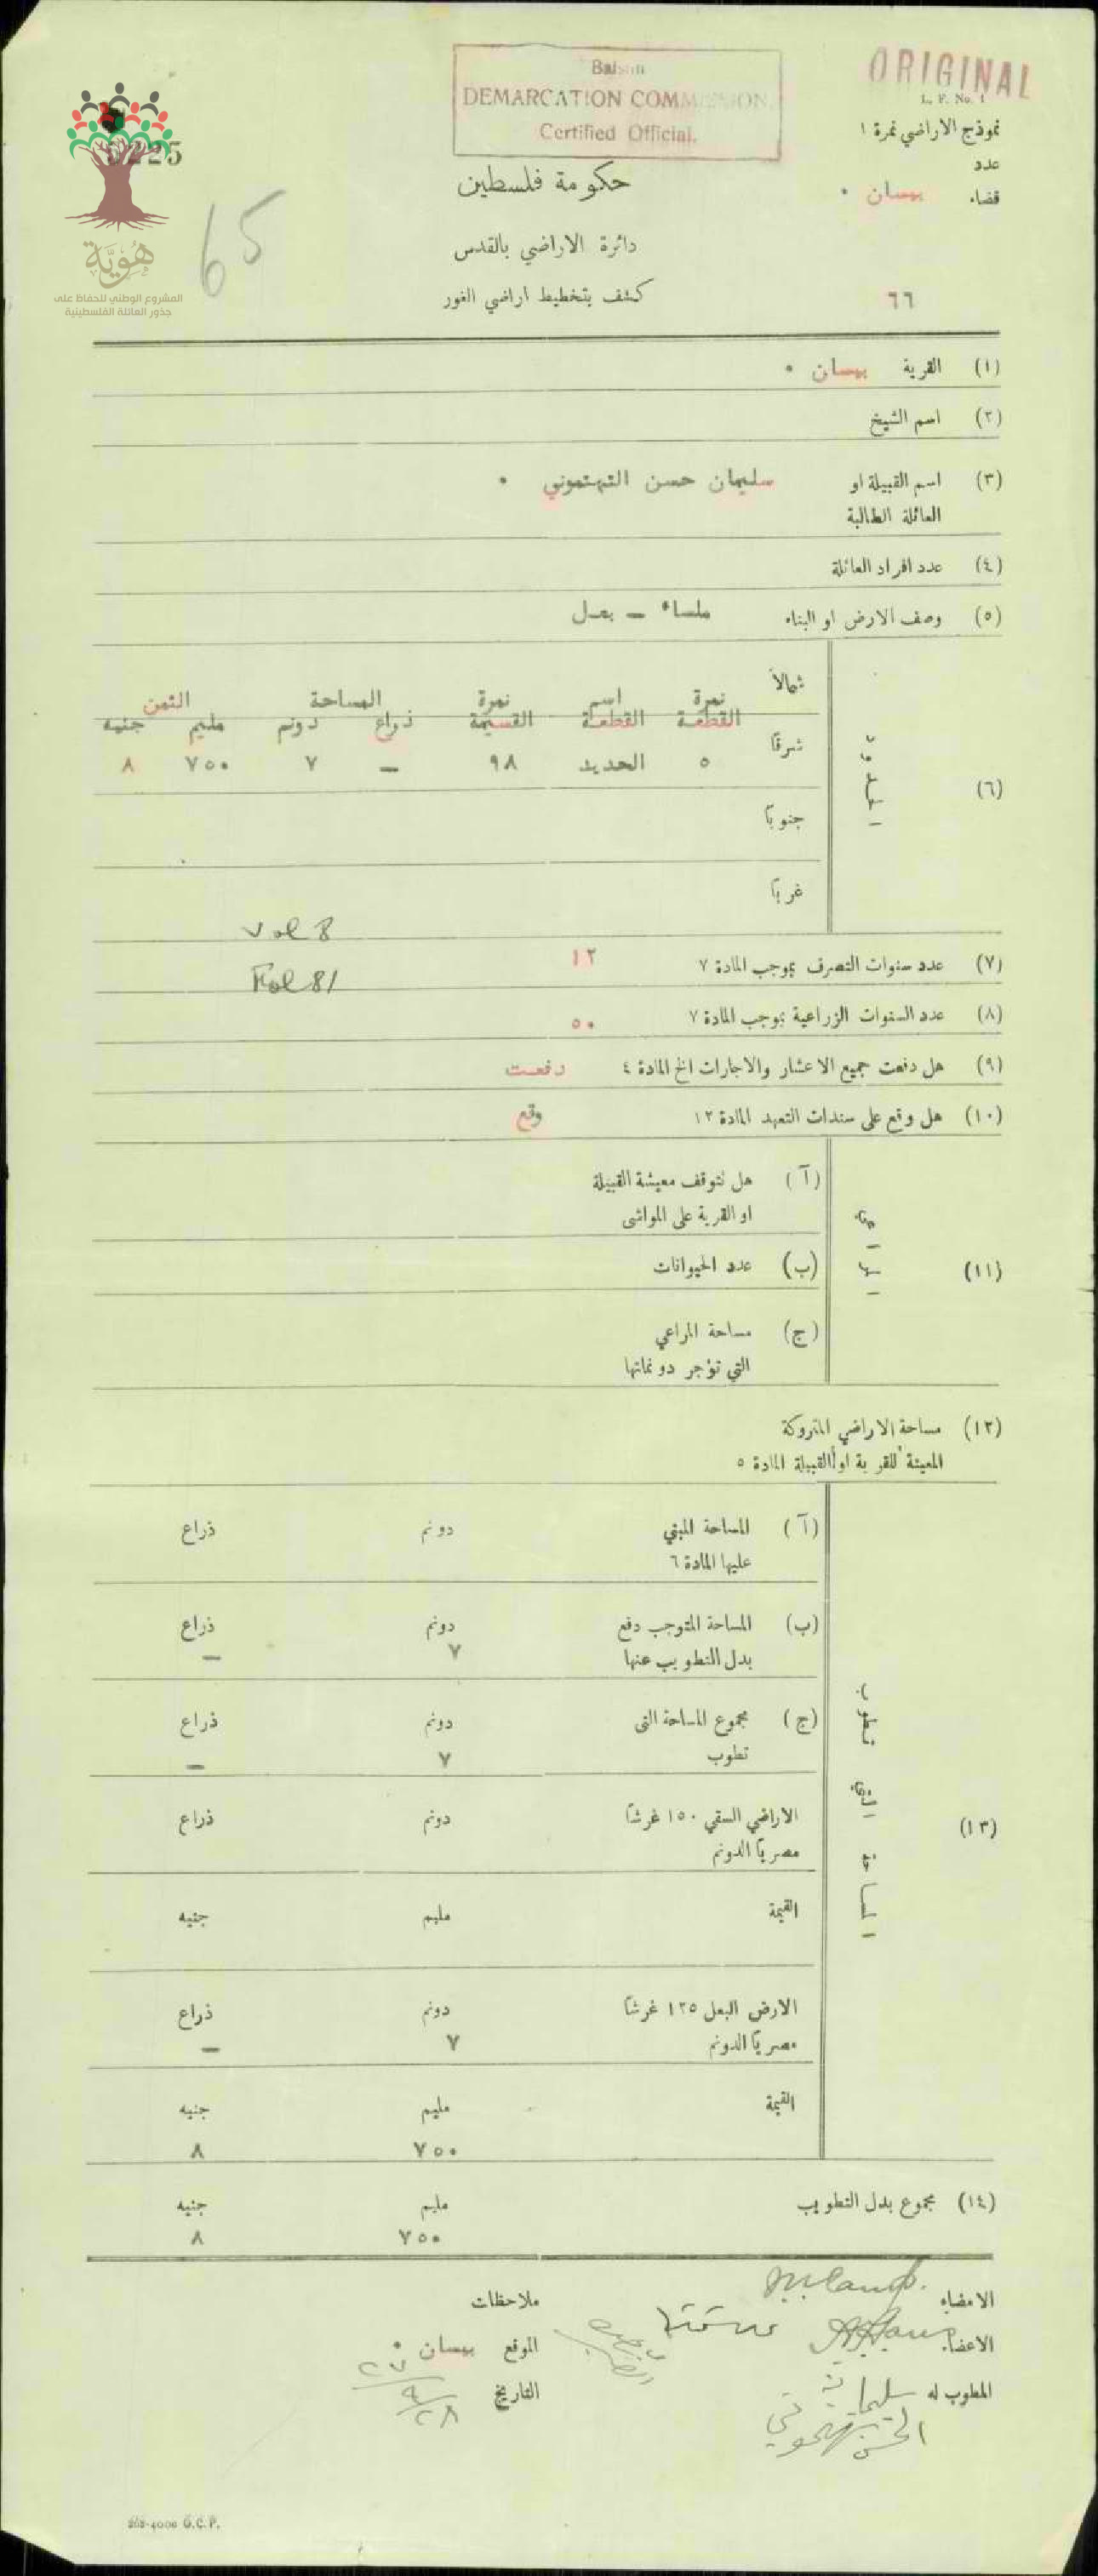 ORIGINAL
Baisan
DEMARCATION COMMISSION
Certified Official.
L. F. No. 1
نموذج الاراضي نمرة ١
عدد
قضاء بيسان
225
65
حكومة فلسطين
دائرة الاراضي بالقدس
كشف بتخطيط اراضي الغور
٦٦
هُوِيَّة
المشروع الوطني للحفاظ على
جذور العائلة الفلسطينية
(١) القرية بيسان •
(٢) اسم الشيخ
(٣) اسم القبيلة او سليمان حسن التهتموني •
العائلة الطالبة
(٤) عدد افراد العائلة
(٥) وصف الارض او البناء ملساء — بعل
(٦) الحدود
شمالاً
نمرة اسم نمرة المساحة الثمن
القطعة القطعة القسيمة ذراع دونم مليم جنيه
شرقًا
٥ الحديد ٩٨ — ٧ ٧٥٠ ٨
جنوبًا
غربًا
Vol 8
(٧) عدد سنوات التصرف بموجب المادة ٧ ١٢
Fol 81
(٨) عدد السنوات الزراعية بموجب المادة ٧ ٥٠
(٩) هل دفعت جميع الاعشار والاجارات الخ المادة ٤ دفعت
(١٠) هل وقع على سندات التعهد المادة ١٢ وقع
(١١) المراعي
(آ) هل تتوقف معيشة القبيلة
او القرية على المواشي
(ب) عدد الحيوانات
(ج) مساحة المراعي
التي تؤجر دونماتها
(١٢) مساحة الاراضي المتروكة
المعينة للقرية او القبيلة المادة ٥
(١٣) المساحة التي تطوب
(آ) المساحة المبني دونم ذراع
عليها المادة ٦
(ب) المساحة المتوجب دفع دونم ذراع
بدل التطويب عنها ٧ —
(ج) مجموع المساحة التي دونم ذراع
تطوب ٧ —
الاراضي السقي ١٥٠ غرشًا دونم ذراع
مصريًا الدونم
القيمة مليم جنيه
الارض البعل ١٢٥ غرشًا دونم ذراع
مصريًا الدونم ٧ —
القيمة مليم جنيه
٧٥٠ ٨
(١٤) مجموع بدل التطويب مليم جنيه
٧٥٠ ٨
الامضاء ملاحظات
الاعضاء الموقع بيسان •
المطوب له سليمان التاريخ ٢٧/٩/٢٨
الحسن تهتموني
262-4000 G.C.P.